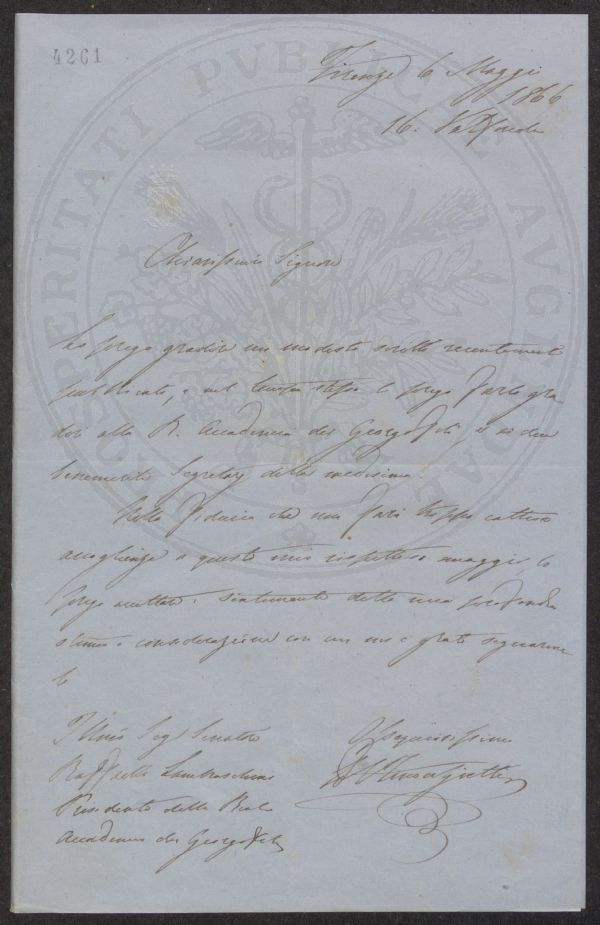 4261
PROSPERITATI PVBLICAE AVGENDAE
Firenze 6 Maggio
1866
16. Valfonda
Chiarissimo Signore
La prego gradire un modesto scritto recentemente
pubblicato, e nel tempo stesso la prego farlo gra
dire alla R. Accademia dei Georgofili, e ai due
benemeriti Segretarj della medesima.
Nella fiducia che non farà troppo cattiva
accoglienza a questo mio rispettoso omaggio, la
prego accettare i sentimenti della mia profonda
stima e considerazione con cui mi è grato segnarme
le
Illmo Sigr Senatore
Raffaello Lambruschini
Presidente della Reale
Accademia dei Georgofili
Obbligatissimo